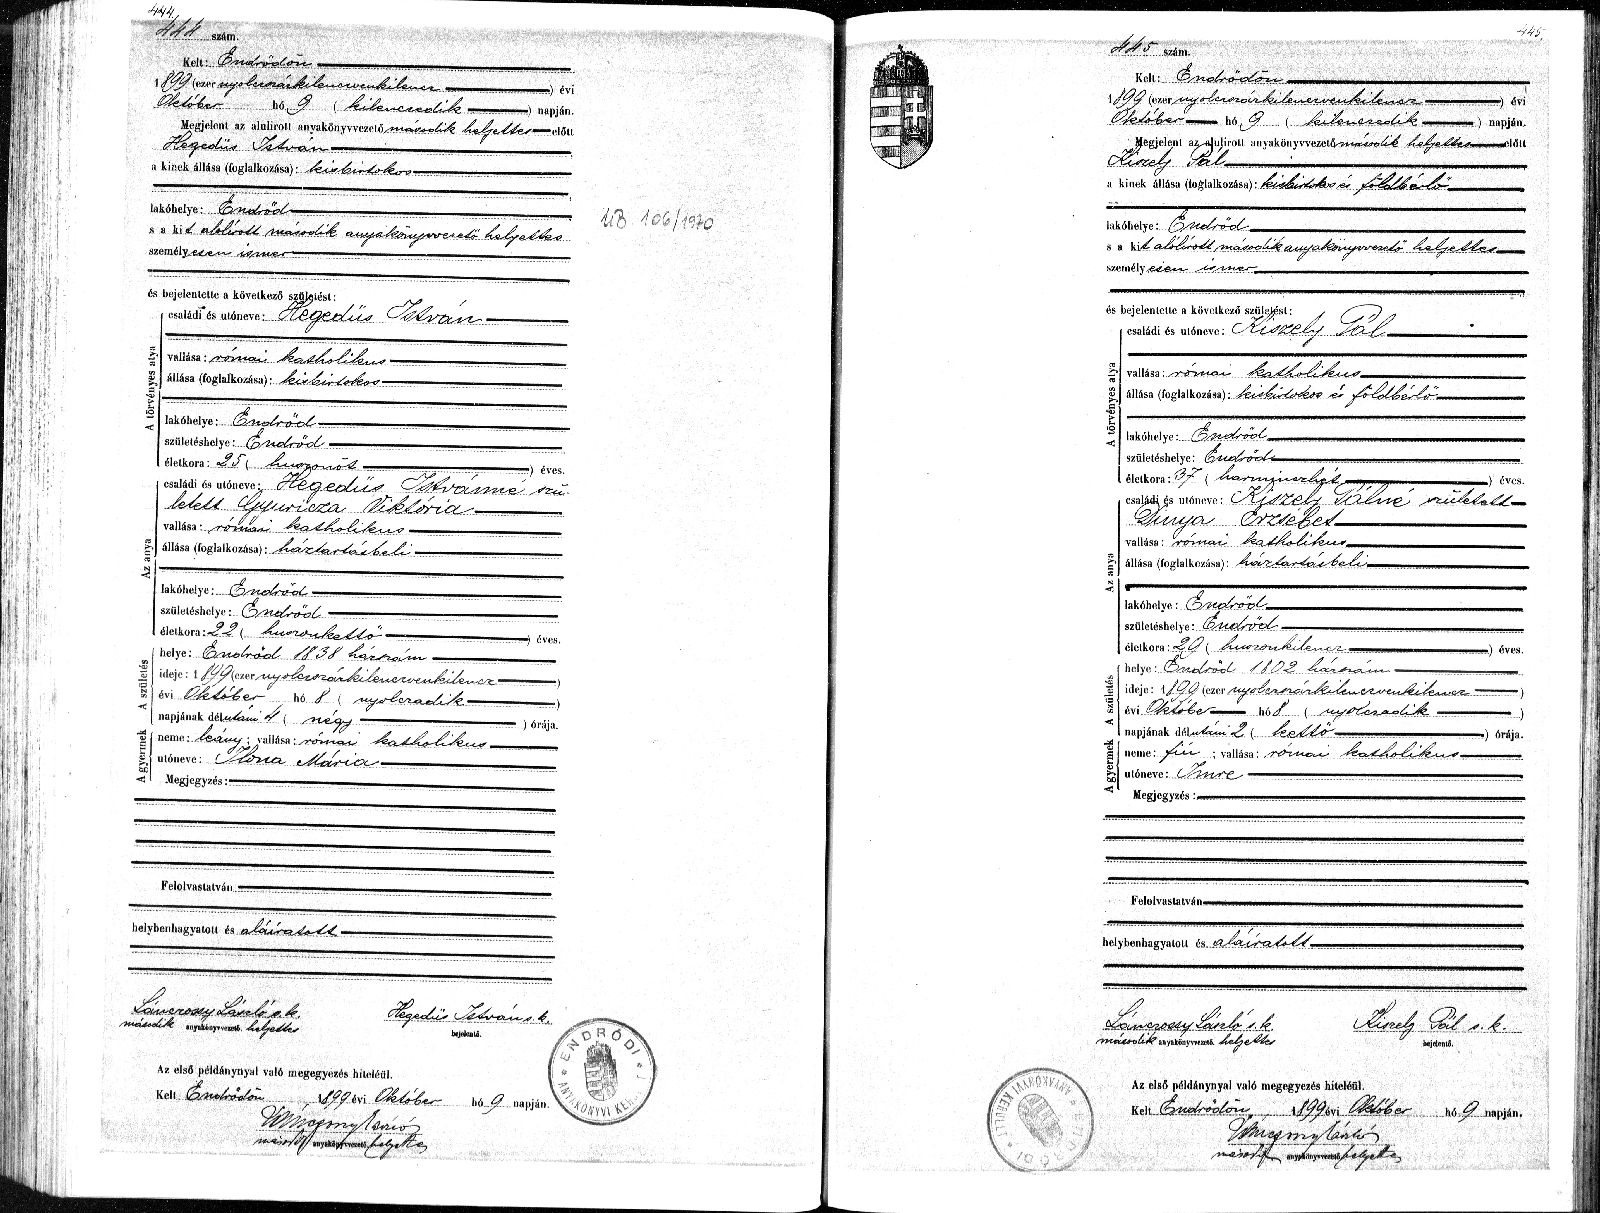 444.
444 szám.
Kelt: Endrődön
1899 (ezer nyolczszázkilenczvenkilencz) évi
Október hó 9 (kilenczedik) napján.
Megjelent az alulirott anyakönyvvezető második helyettes előtt
Hegedüs István
a kinek állása (foglalkozása): kisbirtokos
lakóhelye: Endrőd
s a kit alólírott második anyakönyvvezető helyettes
személyesen ismer
és bejelentette a következő születést:
A törvényes atya
családi és utóneve: Hegedüs István
vallása: római katholikus
állása (foglalkozása): kisbirtokos
lakóhelye: Endrőd
születéshelye: Endrőd
életkora: 25 (huszonöt) éves.
Az anya
családi és utóneve: Hegedüs Istvánné szü-
letett Gyuricza Viktória
vallása: római katholikus
állása (foglalkozása): háztartásbeli
lakóhelye: Endrőd
születéshelye: Endrőd
életkora: 22 (huszonkettő) éves.
A születés
helye: Endrőd 1838 házszám
ideje: 1899 (ezer nyolczszázkilenczvenkilencz)
évi Október hó 8 (nyolczadik)
napjának délutáni 4 (négy) órája.
A gyermek
neme: leány; vallása: római katholikus
utóneve: Ilona Mária
Megjegyzés:
Felolvastatván
helybenhagyatott és aláíratott
Lánczossy László s.k. Hegedüs István s.k.
második anyakönyvvezető helyettes bejelentő.
Az első példánynyal való megegyezés hiteléül.
Kelt Endrődön, 1899 évi Október hó 9 napján.
második anyakönyvvezető helyettes
ENDRŐDI ANYAKÖNYVI KER.
UB 106/1970
445.
445 szám.
Kelt: Endrődön
1899 (ezer nyolczszázkilenczvenkilencz) évi
Október hó 9 (kilenczedik) napján.
Megjelent az alulirott anyakönyvvezető második helyettes előtt
Kiszely Pál
a kinek állása (foglalkozása): kisbirtokos és földbérlő
lakóhelye: Endrőd
s a kit alólírott második anyakönyvvezető helyettes
személyesen ismer
és bejelentette a következő születést:
A törvényes atya
családi és utóneve: Kiszely Pál
vallása: római katholikus
állása (foglalkozása): kisbirtokos és földbérlő
lakóhelye: Endrőd
születéshelye: Endrőd
életkora: 37 (harminczhét) éves.
Az anya
családi és utóneve: Kiszely Pálné született
Dinya Erzsébet
vallása: római katholikus
állása (foglalkozása): háztartásbeli
lakóhelye: Endrőd
születéshelye: Endrőd
életkora: 29 (huszonkilencz) éves.
A születés
helye: Endrőd 1802. házszám
ideje: 1899 (ezer nyolczszázkilenczvenkilencz)
évi Október hó 8 (nyolczadik)
napjának délutáni 2 (kettő) órája.
A gyermek
neme: fiú; vallása: római katholikus
utóneve: Imre
Megjegyzés:
Felolvastatván
helybenhagyatott és aláíratott
Lánczossy László s.k. Kiszely Pál s.k.
második anyakönyvvezető helyettes bejelentő.
Az első példánynyal való megegyezés hiteléül.
Kelt Endrődön, 1899 évi Október hó 9 napján.
második anyakönyvvezető helyettes
ENDRŐDI ANYAKÖNYVI KERÜLET